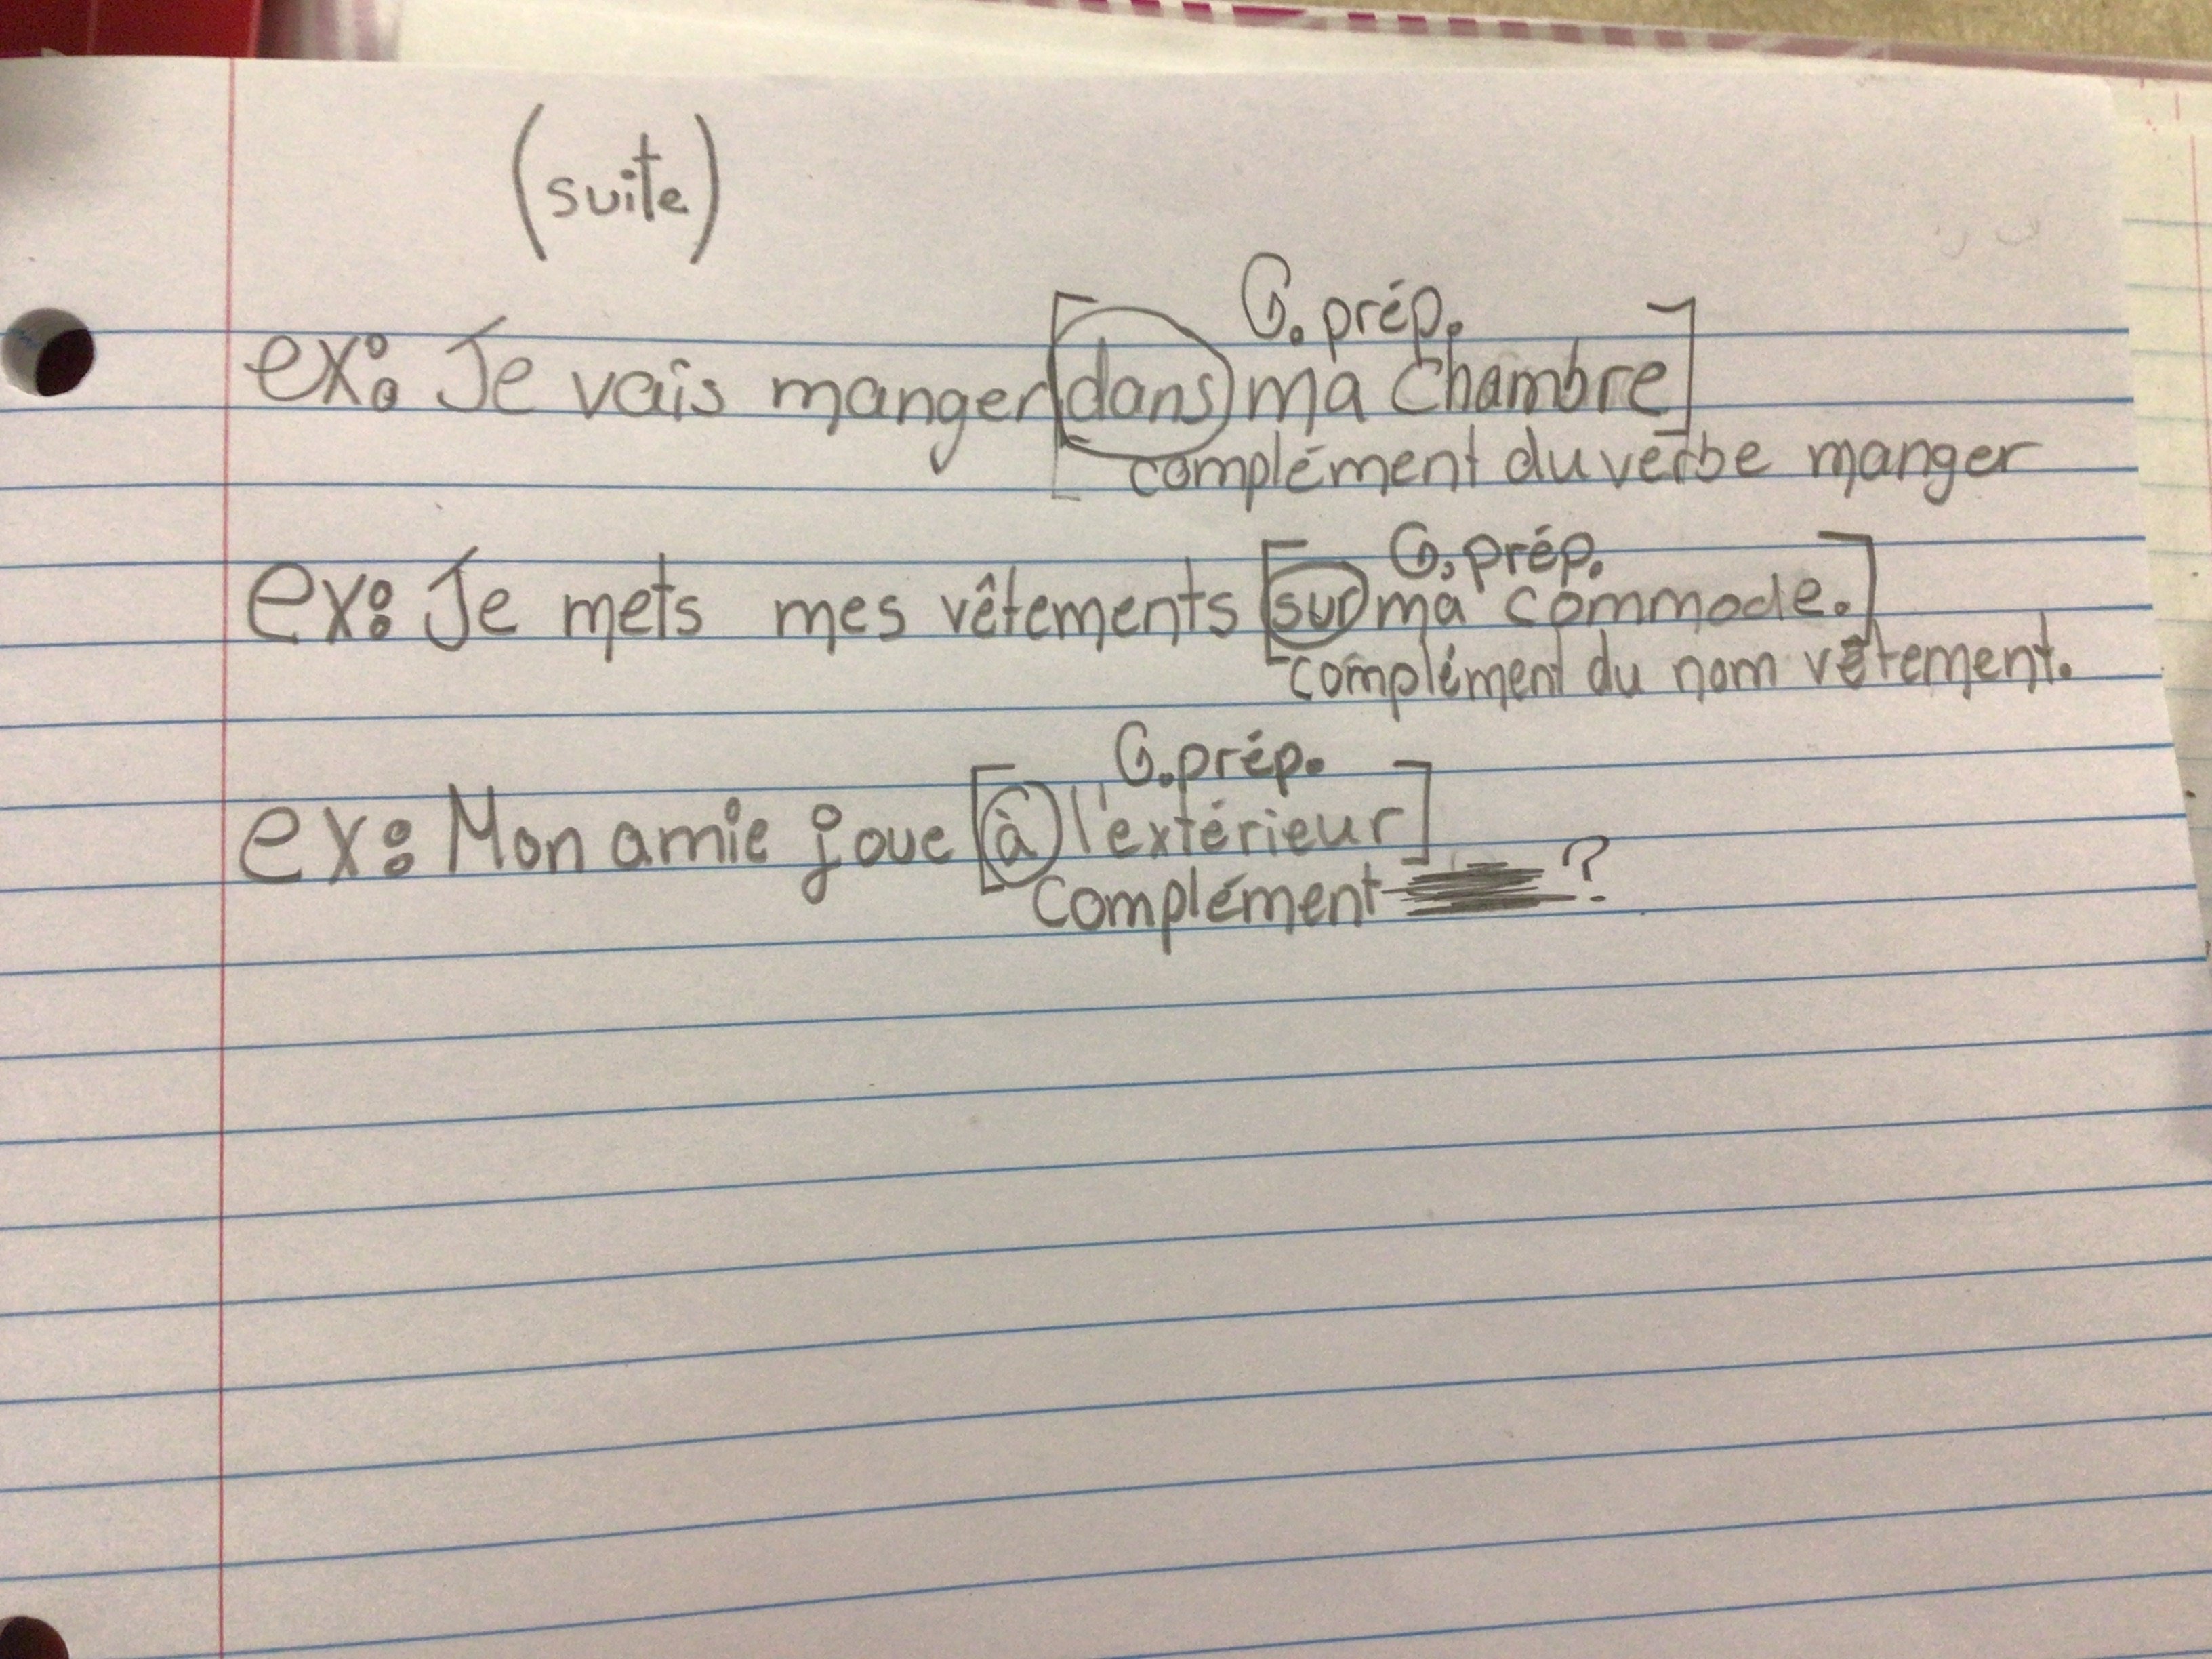 (suite)
G. prép.
ex: Je vais manger [dans ma chambre]
complément du verbe manger
G. prép.
ex: Je mets mes vêtements [sur ma commode.]
complément du nom vêtement.
G. prép.
ex: Mon amie joue [à l'extérieur]
Complément ?